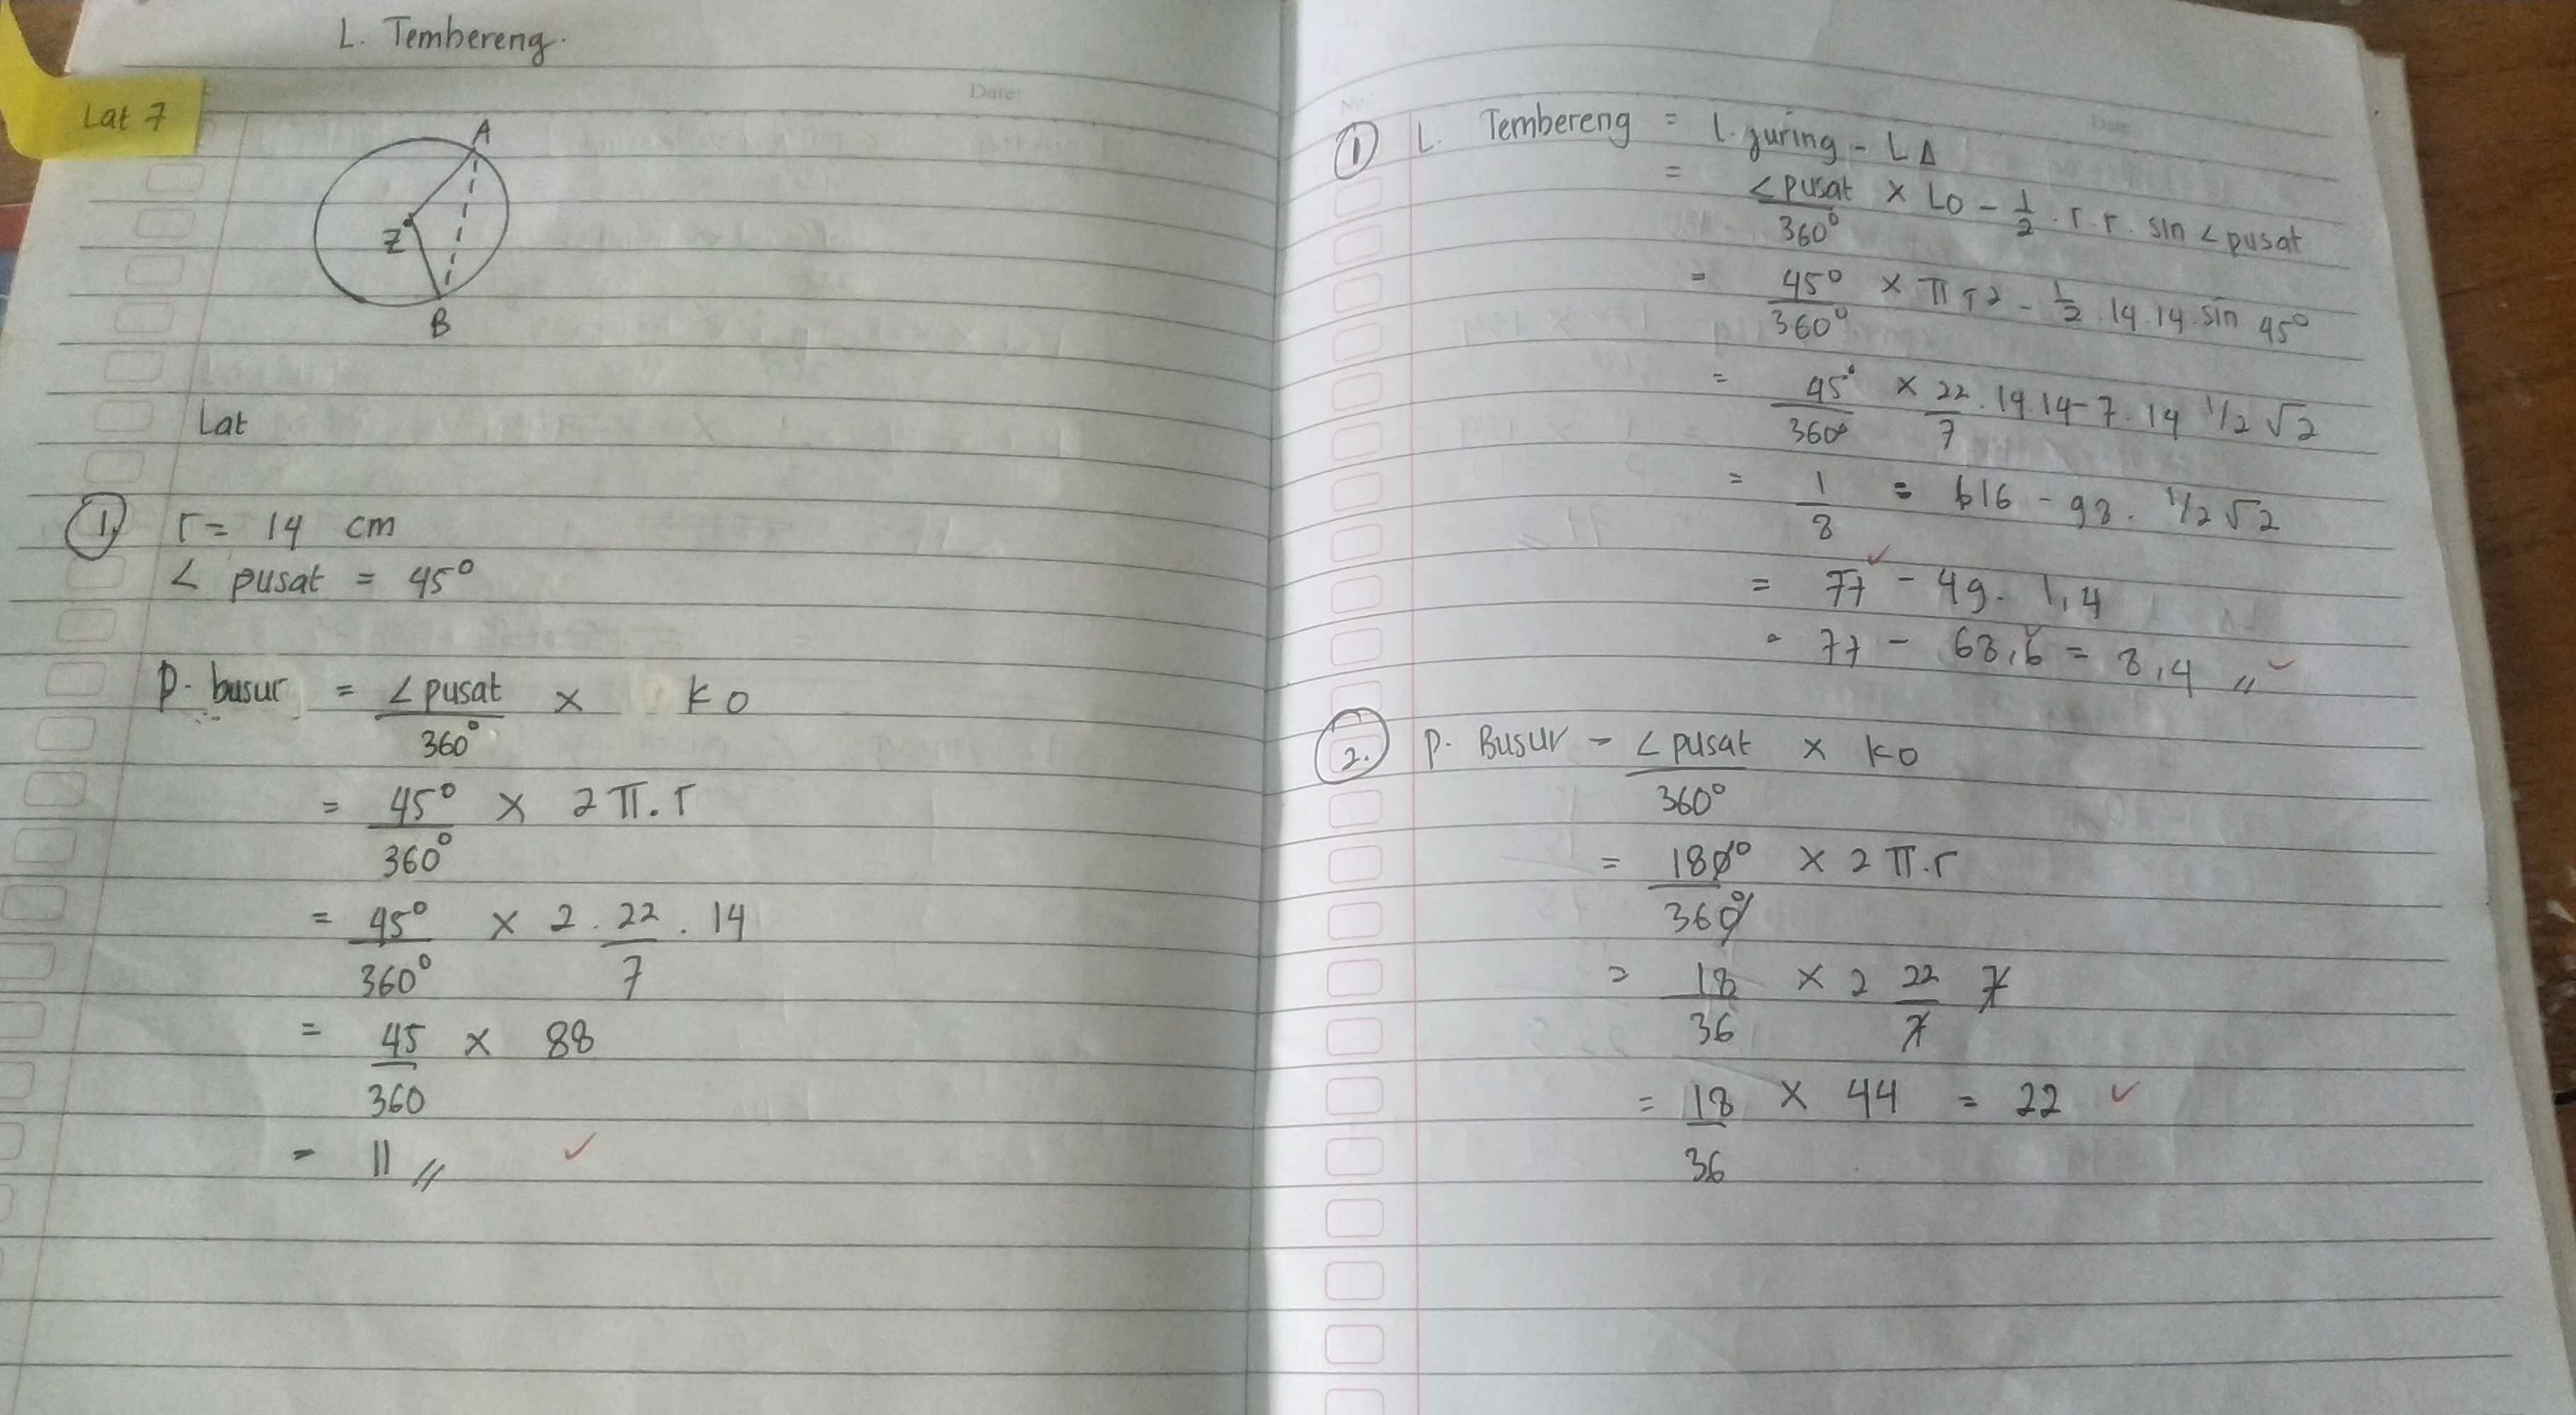 L. Tembereng.
Lat 7
Date:
A
Z
B
Lat
1. r = 14 cm
∠ pusat = 45°
P. busur = ∠pusat/360° x k o
= 45°/360° x 2 π . r
= 45°/360° x 2 . 22/7 . 14
= 45/360 x 88
= 11 //
No.:
Date:
1 L. Tembereng = L. juring - L Δ
= ∠pusat/360° x Lo - 1/2 . r . r . sin ∠pusat
= 45°/360° x π r2 - 1/2 . 14 . 14 . sin 45°
= 45°/360° x 22/7 . 14 . 14 - 7 . 14 1/2 √2
= 1/8 = 616 - 98 . 1/2 √2
= 77 - 49 . 1,4
= 77 - 68,6 = 8,4 //
2. P. Busur = ∠pusat/360° x k o
= 180°/360° x 2 π . r
= 18/36 x 2 22/7 7
= 18/36 x 44 = 22